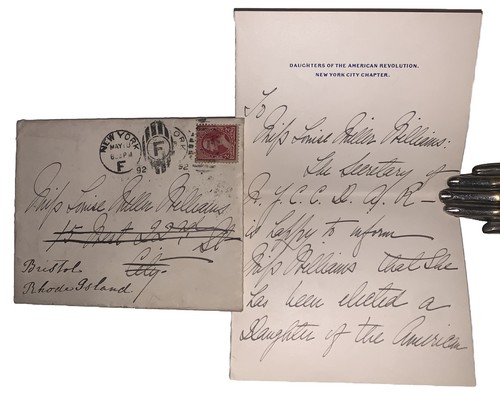 NEW YORK
MAY 10
92
F
F
92
Miss Louise Miller Williams
15 West 22nd St
City.
Bristol.
Rhode Island
DAUGHTERS OF THE AMERICAN REVOLUTION.
NEW YORK CITY CHAPTER.
To
Miss Louise Miller Williams:
The Secretary of
N. Y. C. C. D. A. R—
is happy to inform
Miss Williams that She
has been elected a
Daughter of the American